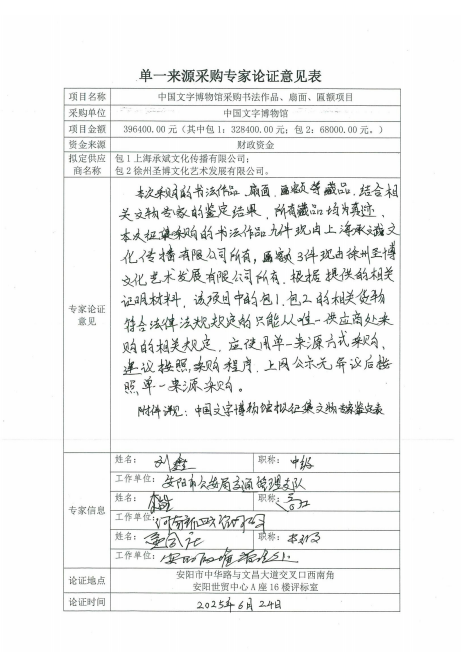 单一来源采购专家论证意见表
项目名称 中国文字博物馆采购书法作品、扇面、匾额项目
采购单位 中国文字博物馆
项目金额 396400.00 元（其中包 1：328400.00 元；包 2：68000.00 元。）
资金来源 财政资金
拟定供应商名称 包 1 上海承斌文化传播有限公司；
包 2 徐州圣博文化艺术发展有限公司。
专家论证意见
本次采购的书法作品、扇面、匾额等藏品，结合相
关文物专家的鉴定结果，所有藏品均为真迹。
本次征集采购的书法作品九件现由上海承斌文
化传播有限公司所有，匾额3件现由徐州圣博
文化艺术发展有限公司所有。根据提供的相关
证明材料，该项目中的包1、包2的相关货物
符合法律法规规定的只能从唯一供应商处采
购的相关规定，应使用单一来源方式采购。
建议按照采购程序，上网公示无异议后按
照单一来源采购。
附件详见：中国文字博物馆拟征集文物专家鉴定表
专家信息
姓名： 刘鑫 职称： 中级
工作单位： 安阳市公安局交通管理支队
姓名： 职称：
工作单位：
姓名： 职称：
工作单位：
论证地点 安阳市中华路与文昌大道交叉口西南角
安阳世贸中心 A 座 16 楼评标室
论证时间 2025年6月24日